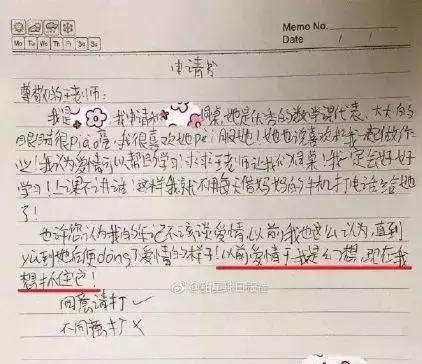 Memo No.
Mo Tu We Th Fr Sa Su
Date / /
申请书
尊敬的王老师:
我是 ,我申请和 同桌,她是优秀的数学课代表、大大的
眼睛很piao亮,我很喜欢她,pei服她!她也说喜欢和我一起做作
业!我认为爱情可以帮助学习!求求王老师让我们同桌!我一定会好好
学习!上课不讲话!这样我就不用每天借妈妈的手机打电话给她
了!
也许您认为我的年纪不该说爱情,以前我也这么认为,直到
yu到她后便dong了爱情的样子!以前爱情于我是幻想,现在我
想抓住它!
同意请打 ✓
不同意打 ×